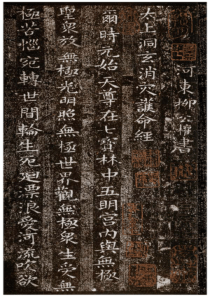 太上洞玄消灾護命經
河東柳公權書
爾時元始天尊在七寶林中五明宮内與無極
聖衆放無極光明照無極世界觀無極衆生受無
極苦惱宛轉世間輪生死廻漂浪愛河流吹欲